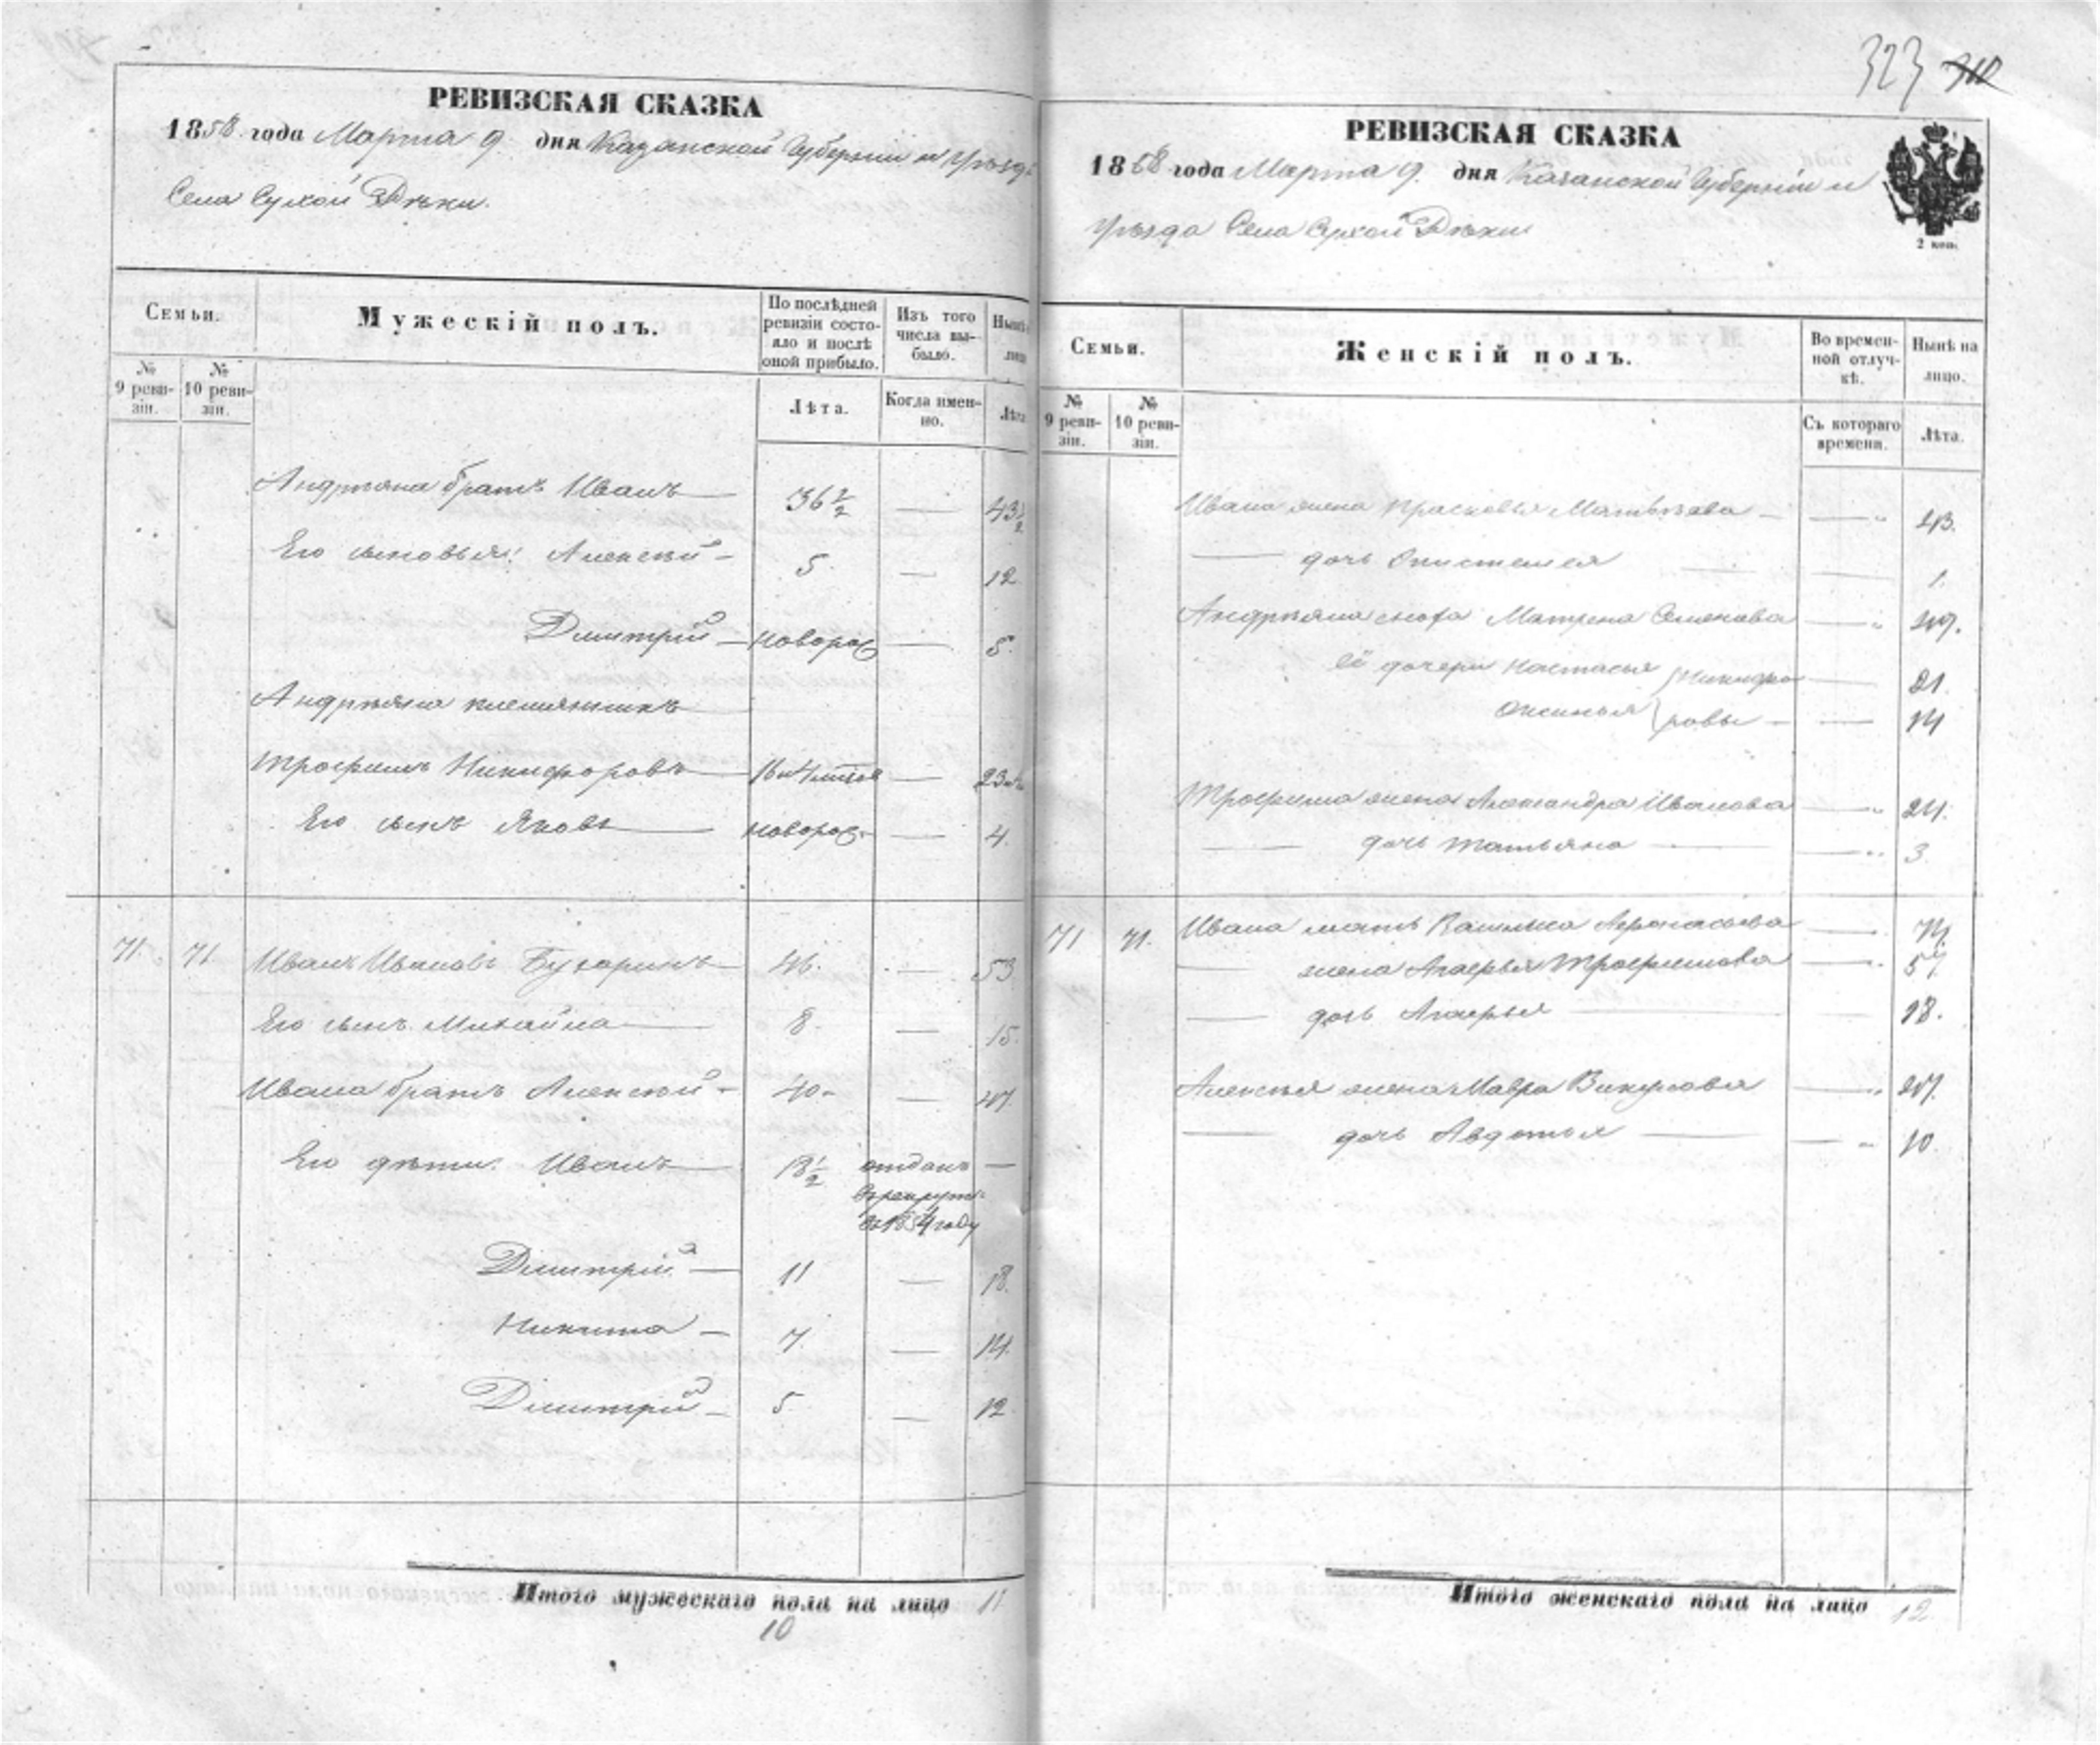 323 310
РЕВИЗСКАЯ СКАЗКА
1858 года Марта 9 дня Казанской Губерніи и Уѣзда
Села Сухой Рѣки.
Семьи.
Мужескій полъ.
По послѣдней ревизіи состояло и послѣ оной прибыло.
Изъ того числа выбыло.
№ 9 ревизіи.
№ 10 ревизіи.
Лѣта.
Когда именно.
Лѣта
Андреяна братъ Иванъ 36 1/2 — 43 1/2
Его сыновья: Алексѣй 5 — 12
Дмитрій новорож — 5.
Андреяна племянникъ
Трофимъ Никифоровъ 16 — 23
Его сынъ Яковъ новорож. — 4.
71. 71 Иванъ Ивановъ 46. — 53
Его сынъ Михайла 8 — 15.
Ивана братъ Алексѣй 40 — 47.
Его дѣти: Иванъ 18 1/2 отданъ —
в рекруты
въ 1854 году
Дмитрій 11 — 18.
Никита 7. — 14.
Дмитрій 5 — 12.
Итого мужескаго пола на лицо 11
10
РЕВИЗСКАЯ СКАЗКА
1858 года Марта 9. дня Казанской Губерніи и
Уѣзда Села Сухой Рѣки
2 коп.
Семьи.
Женскій полъ.
Во временной отлучкѣ.
Нынѣ на лицо.
№ 9 ревизіи.
№ 10 ревизіи.
Съ котораго времени.
Лѣта.
Ивана жена Прасковья Матвѣева — 43.
— дочь — 1.
Андреяна сноха Матрена Семенова — 49.
её дочери Настасья } Никифо — 21.
Оксинья } ровы — 14
Трофима жена Александра Иванова — 24.
— дочь Татьяна — 3.
71 71. Ивана мать Афонасьева — 74.
— жена Агафья Трофимова — 57.
— дочь Агафья — 18.
Алексѣя жена Мавра Викулова — 47.
— дочь Авдотья — 10.
Итого женскаго пола на лицо 12